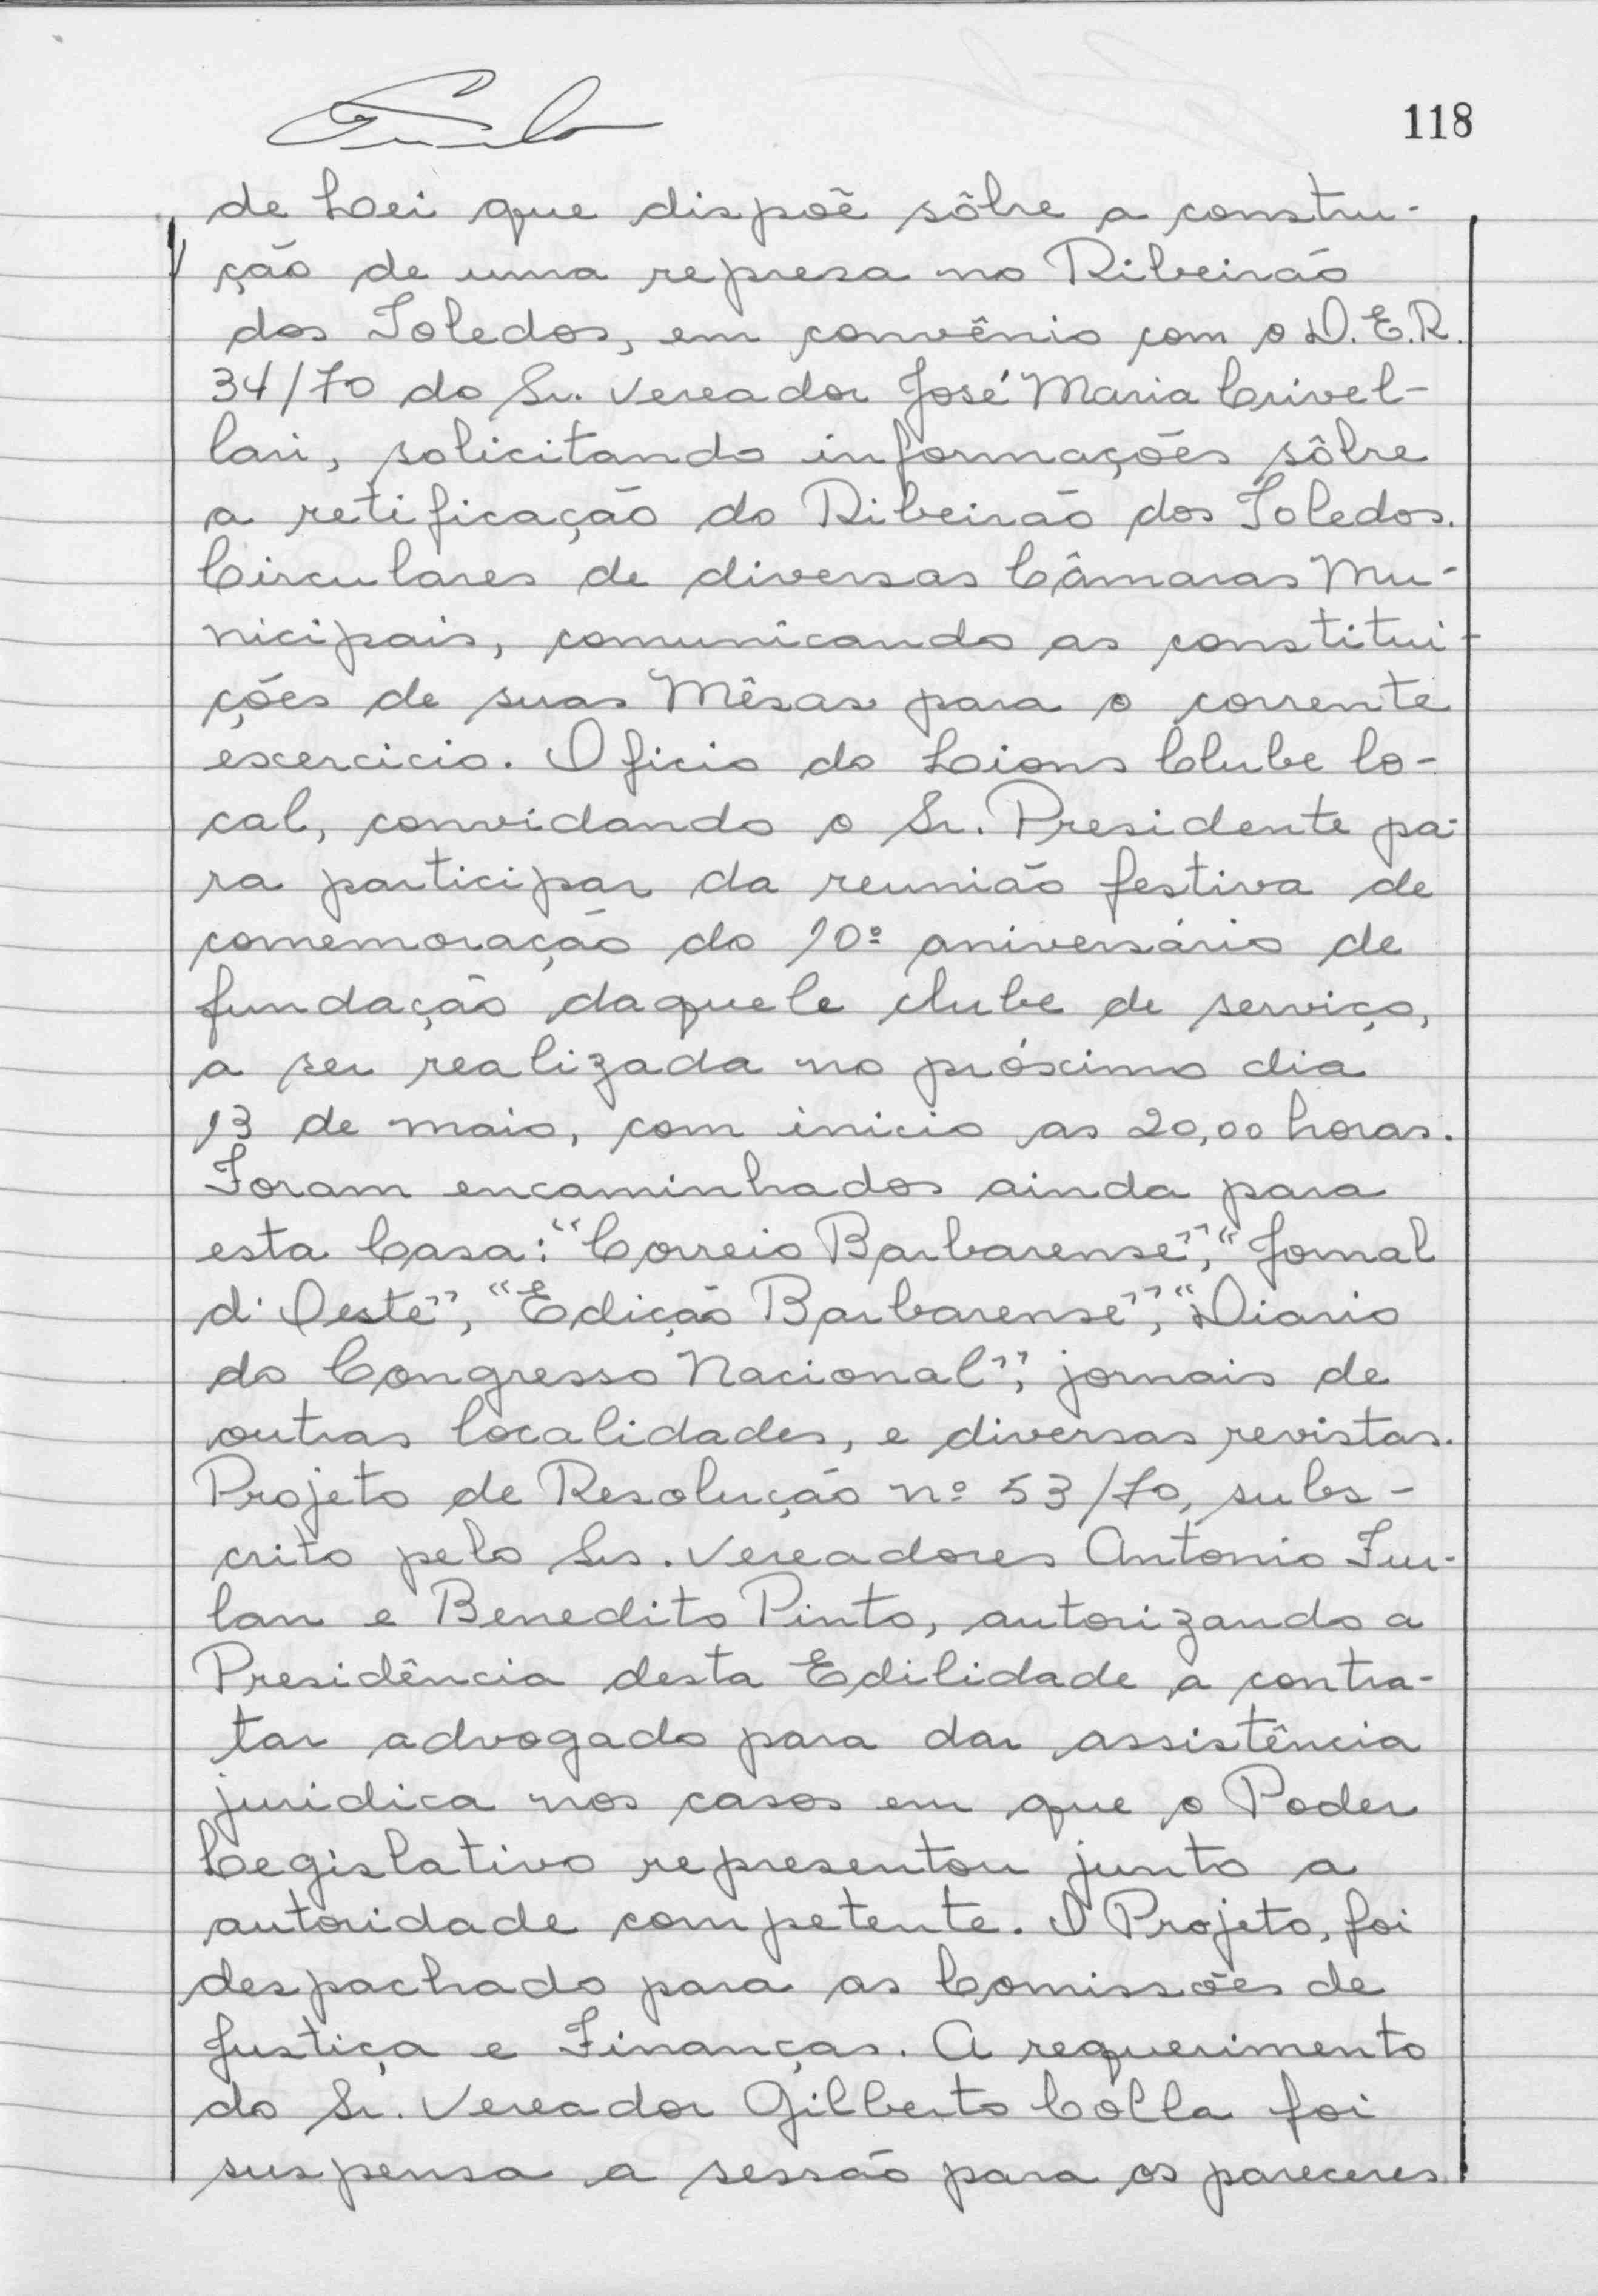 118
de Lei que dispoẽ sôbre a constru-
ção de uma represa no Ribeirão
dos Toledos, em convênio com o D.E.R.
34/70 do Sr. Vereador José Maria Crivel-
lari, solicitando informações sôbre
a retificação do Ribeirão dos Toledos.
Circulares de diversas Câmaras Mu-
nicipais, comunicando as constitui-
ções de suas Mêsas para o corrente
exercicio. Oficio do Lions Clube lo-
cal, convidando o Sr. Presidente pa-
ra participar da reunião festiva de
comemoração do 10º aniversário de
fundação daquele clube de serviço,
a ser realizada no próximo dia
13 de maio, com inicio as 20,00 horas.
Foram encaminhados ainda para
esta Casa: "Correio Barbarense", "Jornal
d'Oeste", "Edição Barbarense", "Diario
do Congresso Nacional", jornais de
outras localidades, e diversas revistas.
Projeto de Resolução nº 53/70, subs-
crito pelo Srs. Vereadores Antonio Fur-
lan e Benedito Pinto, autorizando a
Presidência desta Edilidade a contra-
tar advogado para dar assistência
juridica nos casos em que o Poder
Legislativo representou junto a
autoridade competente. O Projeto, foi
despachado para as Comissões de
Justiça e Finanças. A requerimento
do Sr. Vereador Gilberto Colla foi
suspensa a sessão para os pareceres